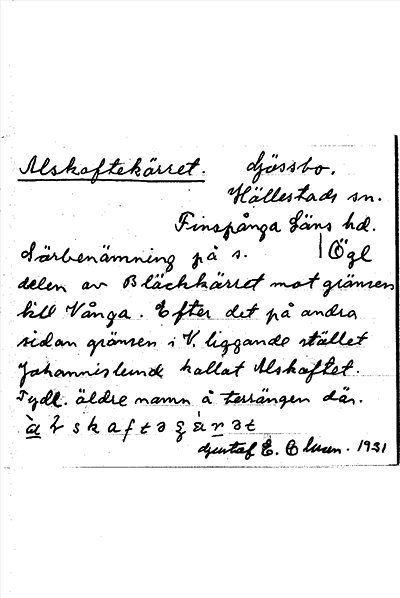 Alskaftekärret. Gössbo.
Hällestads sn.
Finspånga Läns hd.
Särbenämning på s. | Ögl
delen av Bläckkärret mot gränsen
till Vånga. Efter det på andra
sidan gränsen i V. liggande stället
Johannislund kallat Alskaftet.
Tydl. äldre namn å terrängen där.
Gustaf E. 1931